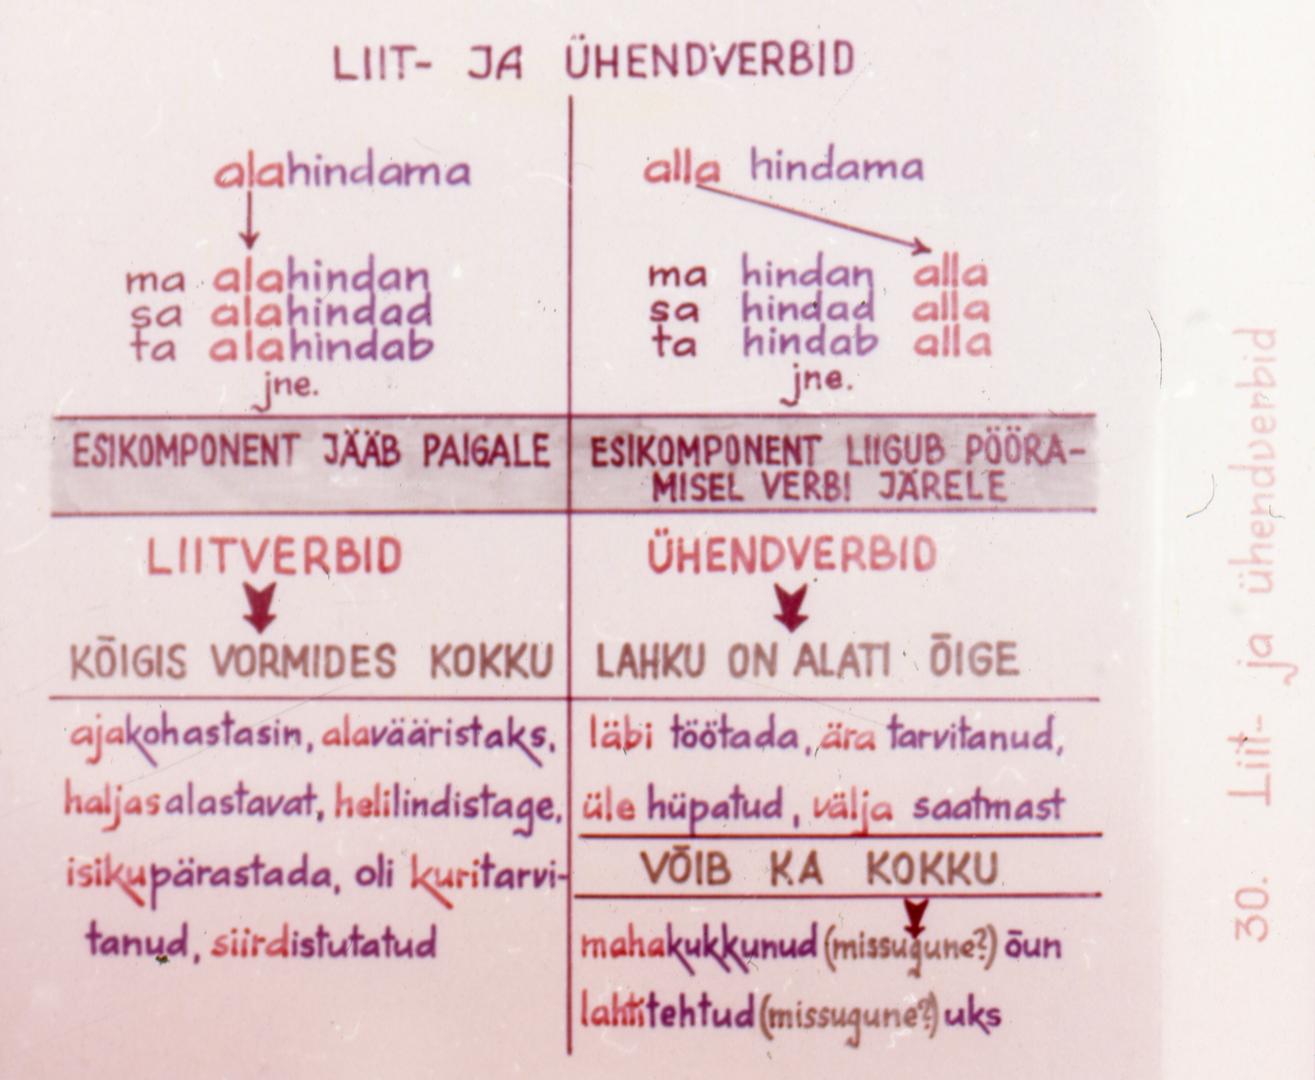 LIIT- JA ÜHENDVERBID
alahindama
ma alahindan
sa alahindad
ta alahindab
jne.
ESIKOMPONENT JÄÄB PAIGALE
LIITVERBID
KÕIGIS VORMIDES KOKKU
ajakohastasin, alavääristaks,
haljasalastavat, helilindistage,
isikupärastada, oli kuritarvi-
tanud, siirdistutatud
alla hindama
ma hindan alla
sa hindad alla
ta hindab alla
jne.
ESIKOMPONENT LIIGUB PÖÖRA-
MISEL VERBI JÄRELE
ÜHENDVERBID
LAHKU ON ALATI ÕIGE
läbi töötada, ära tarvitanud,
üle hüpatud, välja saatmast
VÕIB KA KOKKU
mahakukkunud (missugune?) õun
lahtitehtud (missugune?) uks
30. Liit- ja ühendverbid